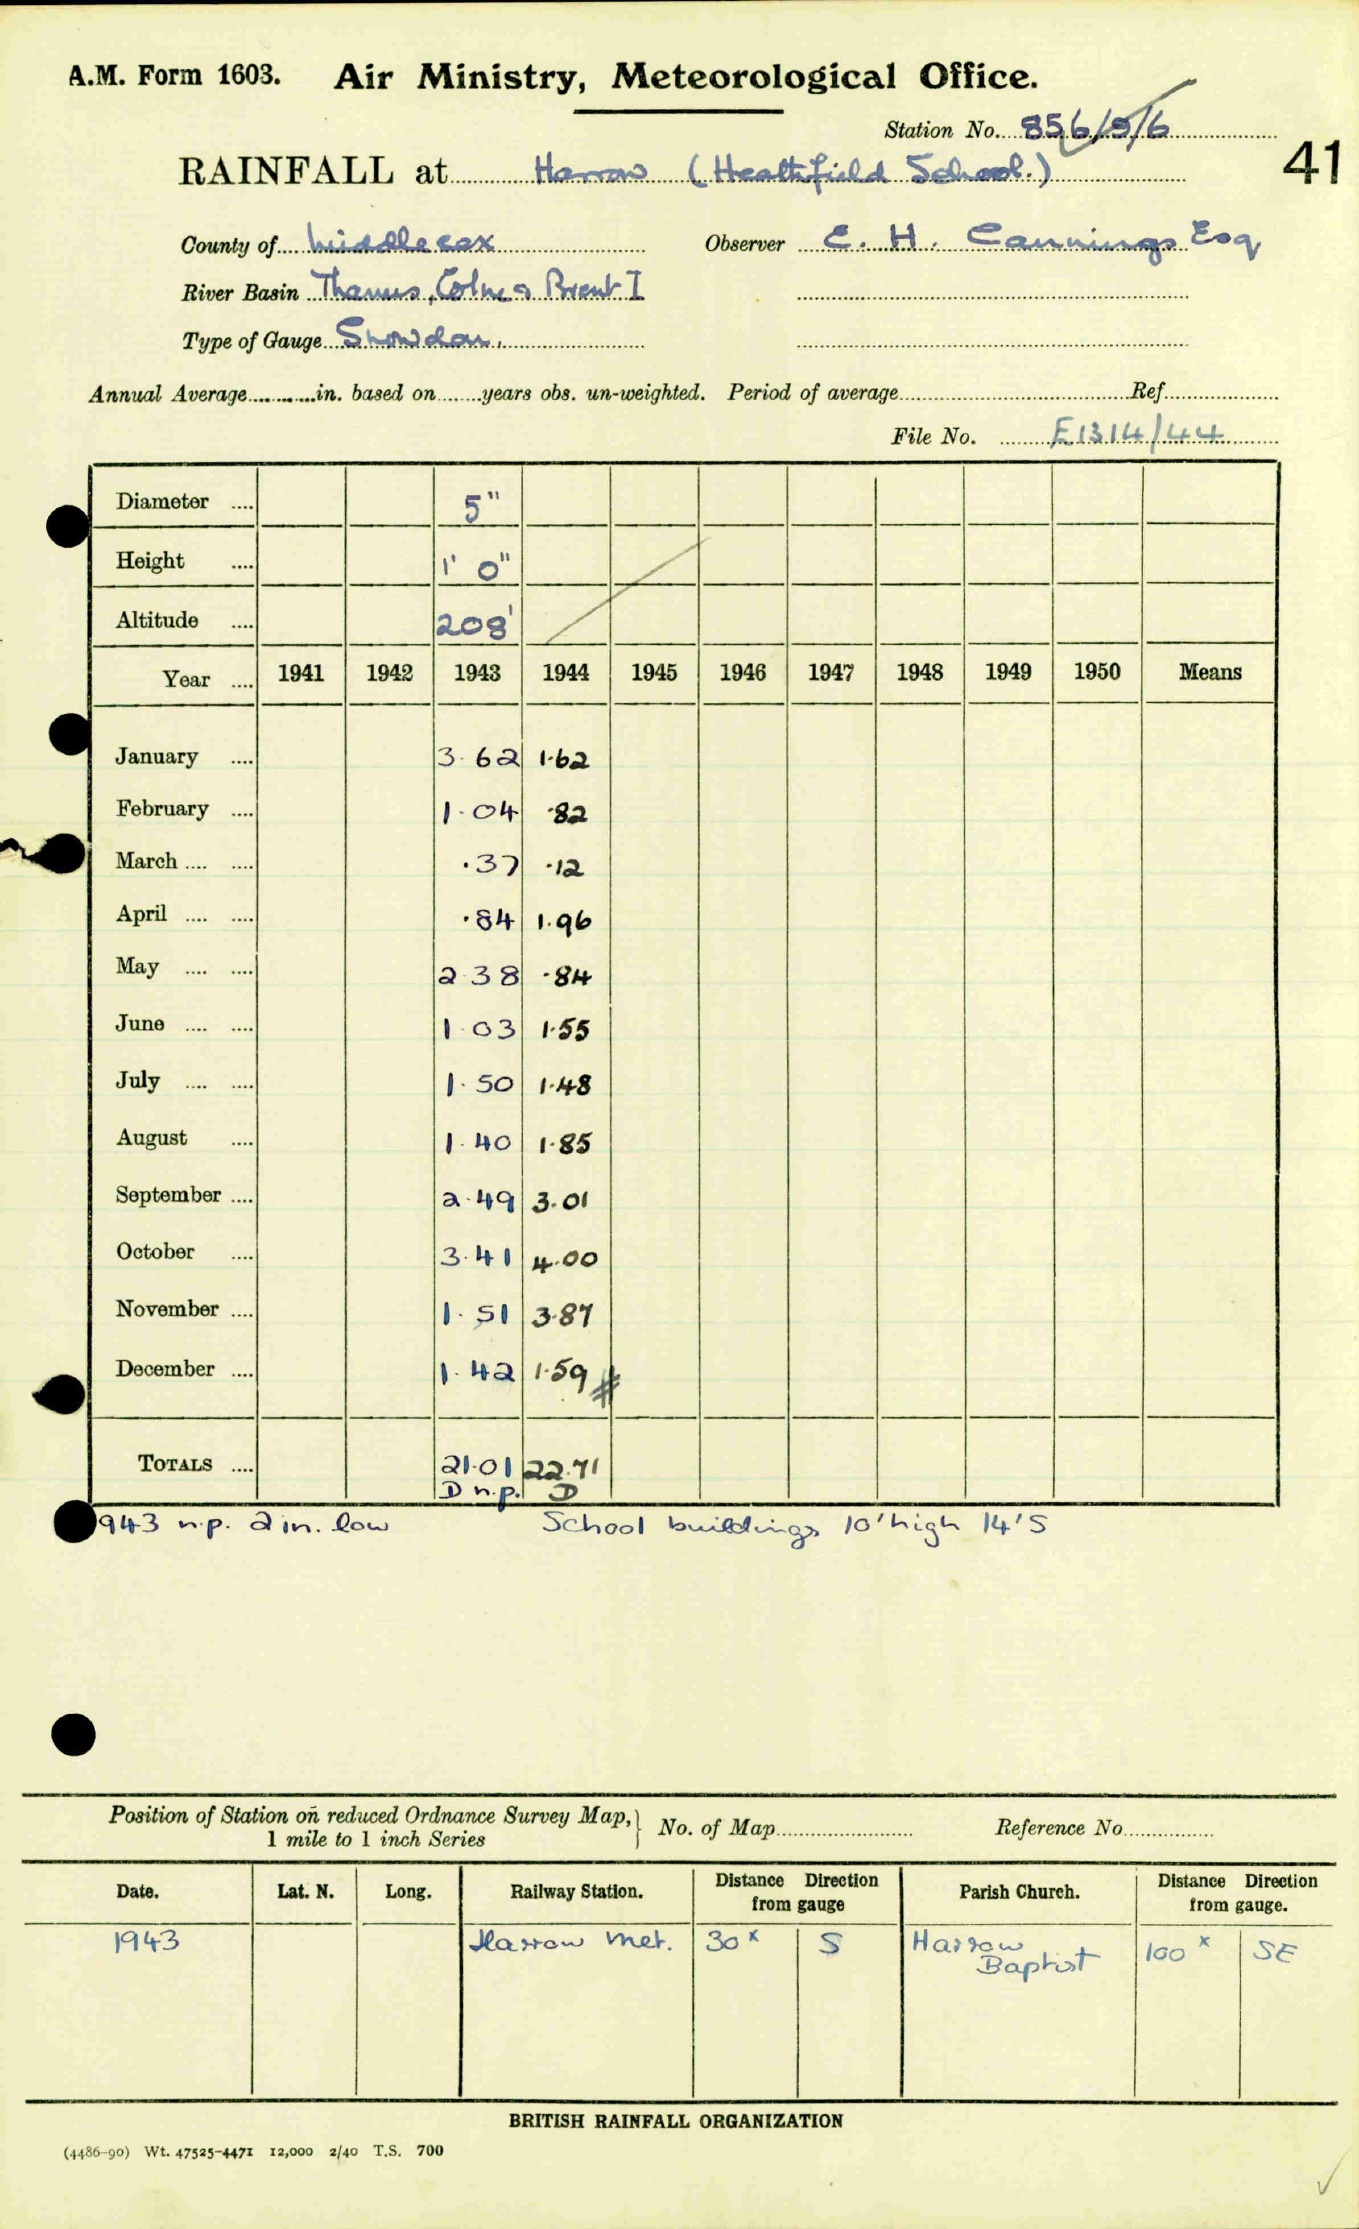 A.M. Form 1603. Air Ministry, Meteorological Office.
Station No. 856/5/6
41
RAINFALL at Harrow (Heathfield School.)
County of Middlesex Observer E. H. Cannings Esq
River Basin Thames, Colne & Brent I
Type of Gauge Snowdon.
Annual Average............in. based on........years obs. un-weighted. Period of average Ref.
File No. E1314/44
Diameter .... 5"
Height .... 1' 0"
Altitude .... 208'
Year .... 1941 1942 1943 1944 1945 1946 1947 1948 1949 1950 Means
January .... 3.62 1.62
February .... 1.04 .82
March .... .... .37 .12
April .... .... .84 1.96
May .... .... 2.38 .84
June .... .... 1.03 1.55
July .... .... 1.50 1.48
August .... 1.40 1.85
September .... 2.49 3.01
October .... 3.41 4.00
November .... 1.51 3.87
December .... 1.42 1.59 #
TOTALS .... 21.01 22.71
D n.p. D
1943 n.p. 2in. low School buildings 10' high 14' S
Position of Station on reduced Ordnance Survey Map, } No. of Map Reference No.
1 mile to 1 inch Series
Date. Lat. N. Long. Railway Station. Distance Direction from gauge Parish Church. Distance Direction from gauge.
1943 Harrow Met. 30x S Harrow Baptist 100x SE
BRITISH RAINFALL ORGANIZATION
(4486-90) Wt. 47525-4471 12,000 2/40 T.S. 700